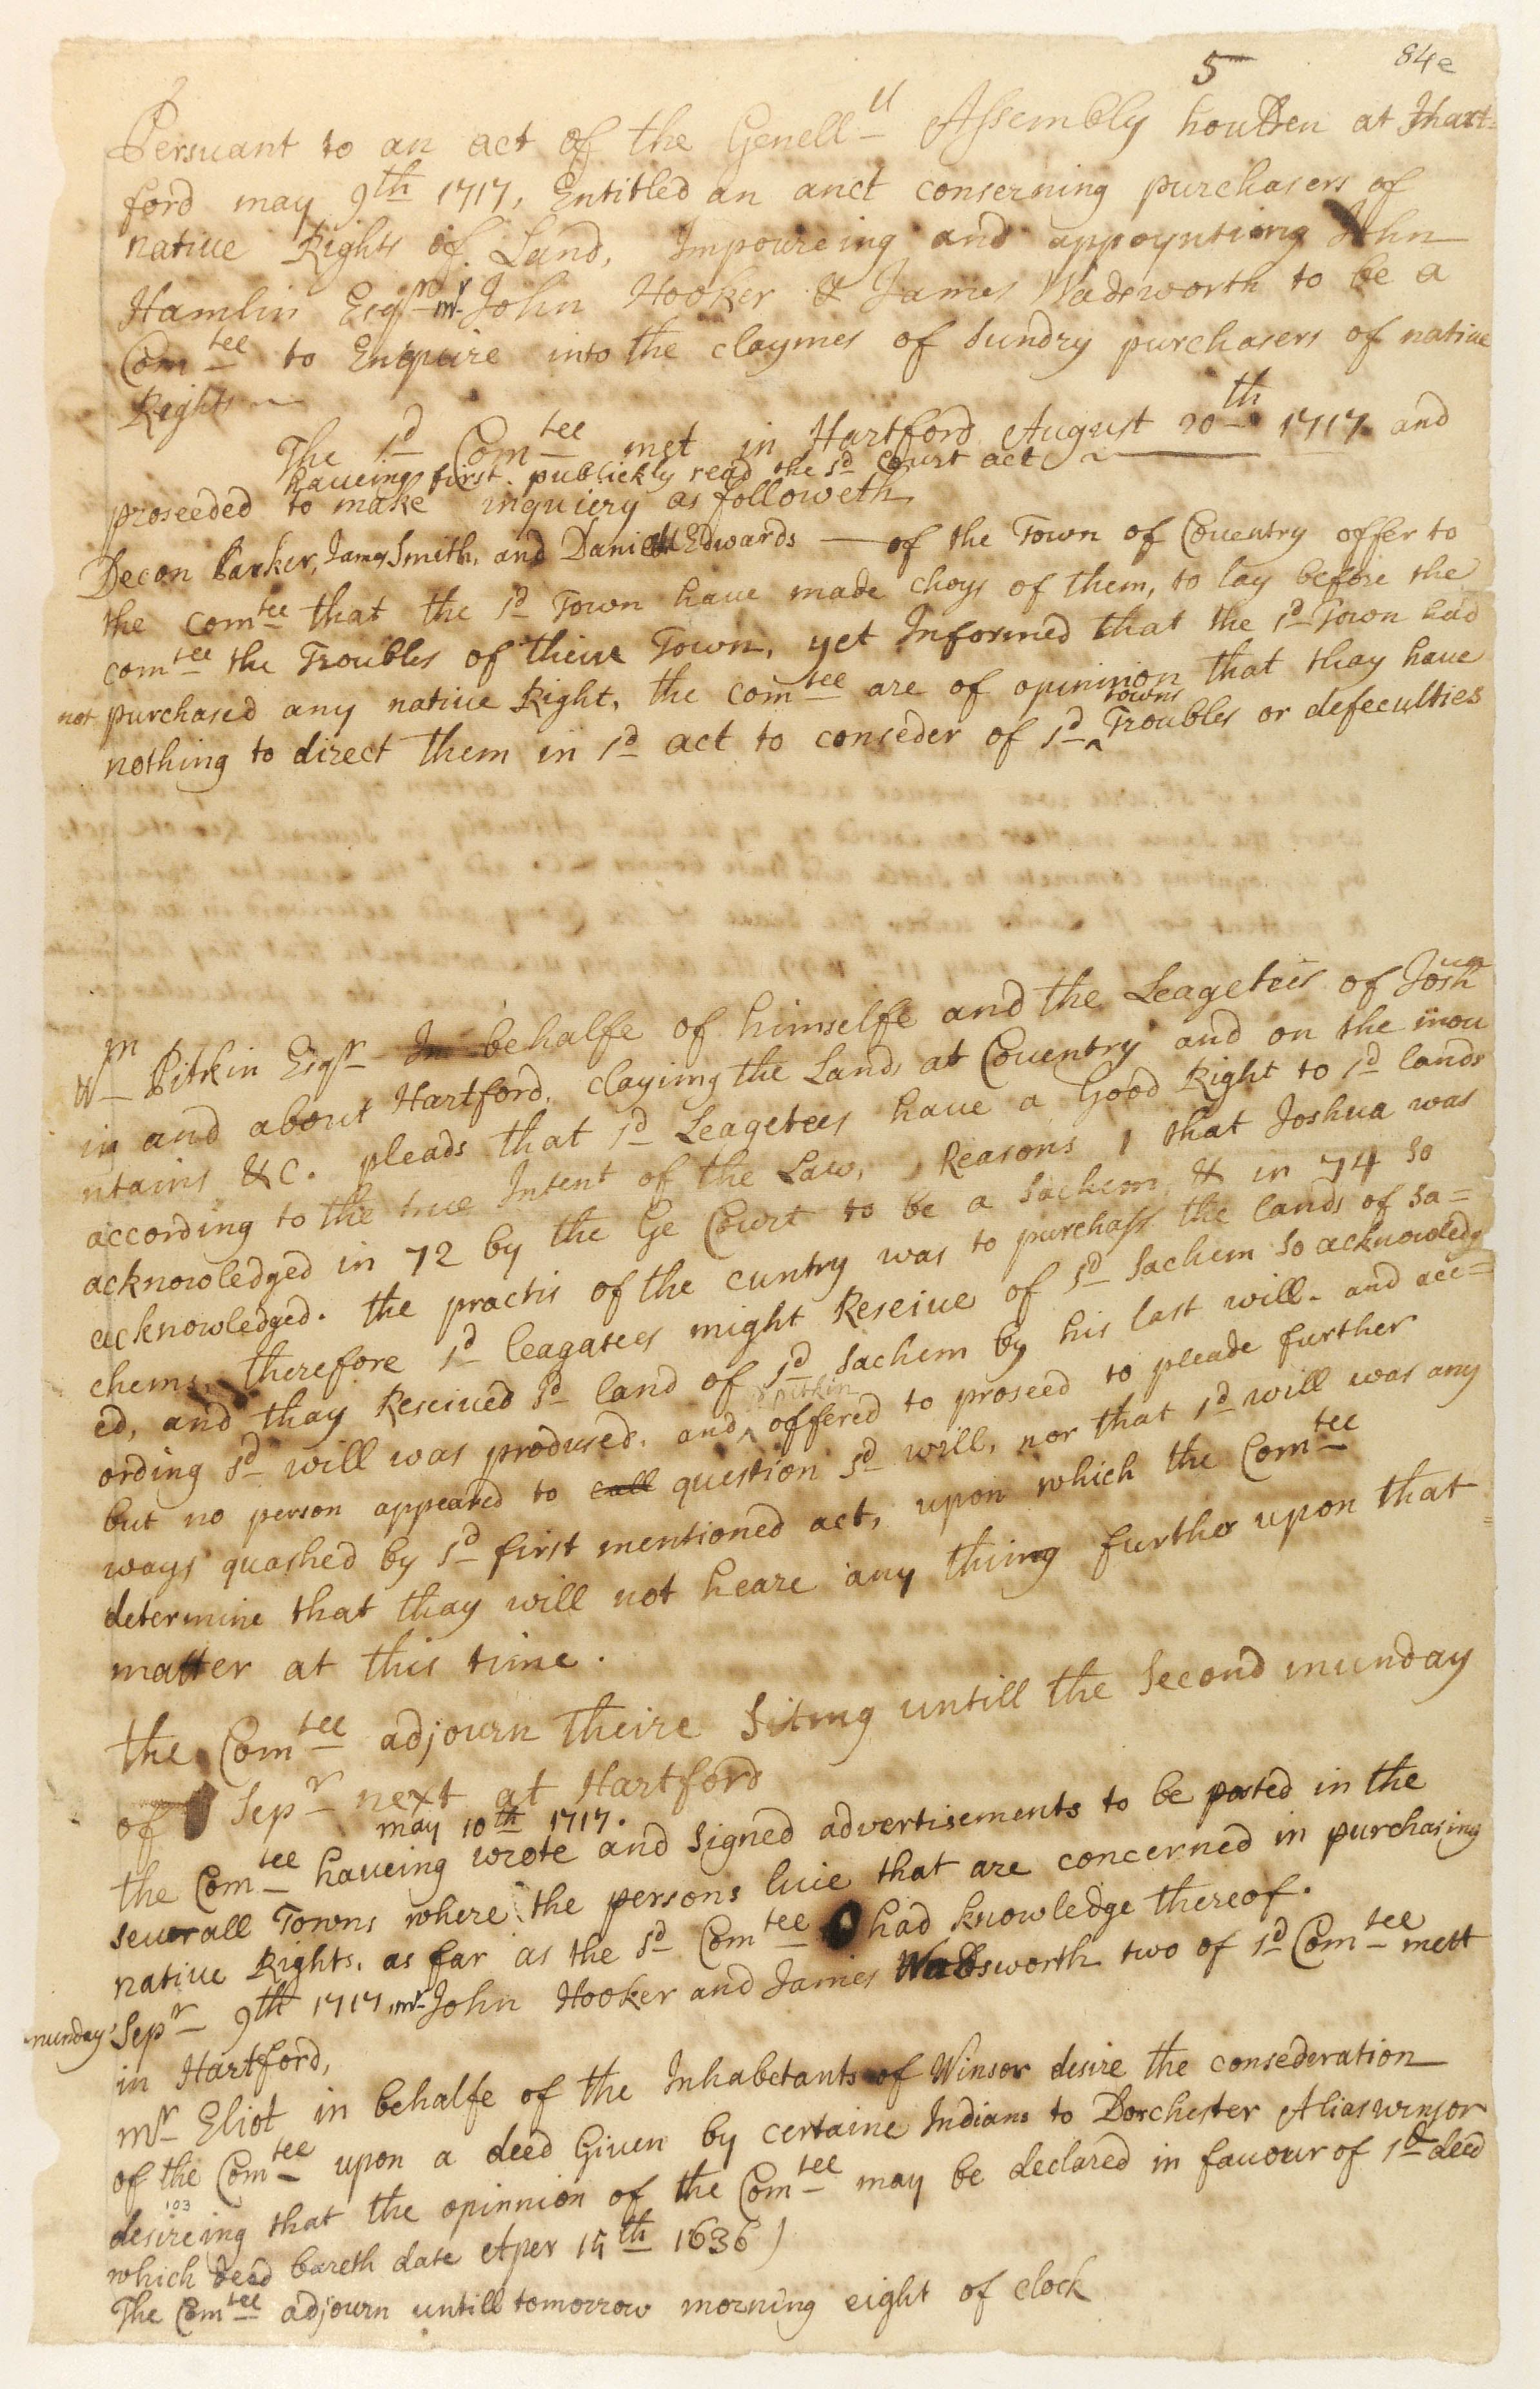 5 84e
Persuant to an act of the Genell^ll Assembly houlden at Hart=
ford may 9th 1717, Entitled an anct conserning purchasers of
native Rights of Land, Impoureing and appoynting John
Hamlin Esqr mr John Hooker & James Wadsworth to be a
Comtee to Enquire into the claymes of Sundry purchasers of native
Rights —
The sd Comtee met in Hartford August 20th 1717 and
haveing first publickly read the sd Court act
proseeded to make inquiery as followeth
Decon Parker, James Smith, and Daniell Edwards — of the Town of Coventry offer to
the comtee that the sd Town have made choys of them, to lay before the
comtee the Troubles of theire Town, yet Informed that the sd Town had
not purchased any native Right, the comtee are of opininion that thay have
towns
nothing to direct them in sd act to conseder of sd ^ Troubles or defeculties
Wm Pitkin Esqr In behalfe of himselfe and the Leagetees of Joshua
in and about Hartford, clayimg the Lands at Coventry and on the mou
ntains &c. pleads that sd Leagetees have a Good Right to sd lands
according to the true Intent of the Law, Reasons 1 that Joshua was
acknowledged in 72 by the Ge Court to be a Sachem, & in 74 so
acknowledged. the practis of the cuntry was to purchass the lands of Sa=
chems, therefore sd leagatees might Reseive of sd Sachem so acknowledg
ed, and thay Reseived sd land of sd Sachem by his last will. and acc=
pitkin
ording sd will was prodused. and ^ offered to proseed to pleade further
but no person appeared to call question sd will, nor that sd will was any
ways quashed by sd first mentioned act, upon which the Comtee
determine that thay will not heare any thing further upon that
matter at this time.
the Comtee adjourn theire Siting untill the Second munday
of Sepr next at Hartford
may 10th 1717.
the Comtee haveing wrote and Signed advertisements to be posted in the
severall Towns where the persons live that are concerned in purchasing
native Rights, as far as the sd Comtee had knowledge thereof.
munday Sepr 9th 1717, mr John Hooker and James Wadsworth two of sd Comtee mett
in Hartford,
mr Eliot in behalfe of the Inhabetants of Winsor desire the consederation
of the Comtee upon a deed Given by certaine Indians to Dorchester Alias winsor
103
desireing that the opinnion of the Comtee may be declared in favour of sd deed
which deed bareth date Aper 15th 1636)
The Comtee adjourn untill tomorrow morning eight of clock